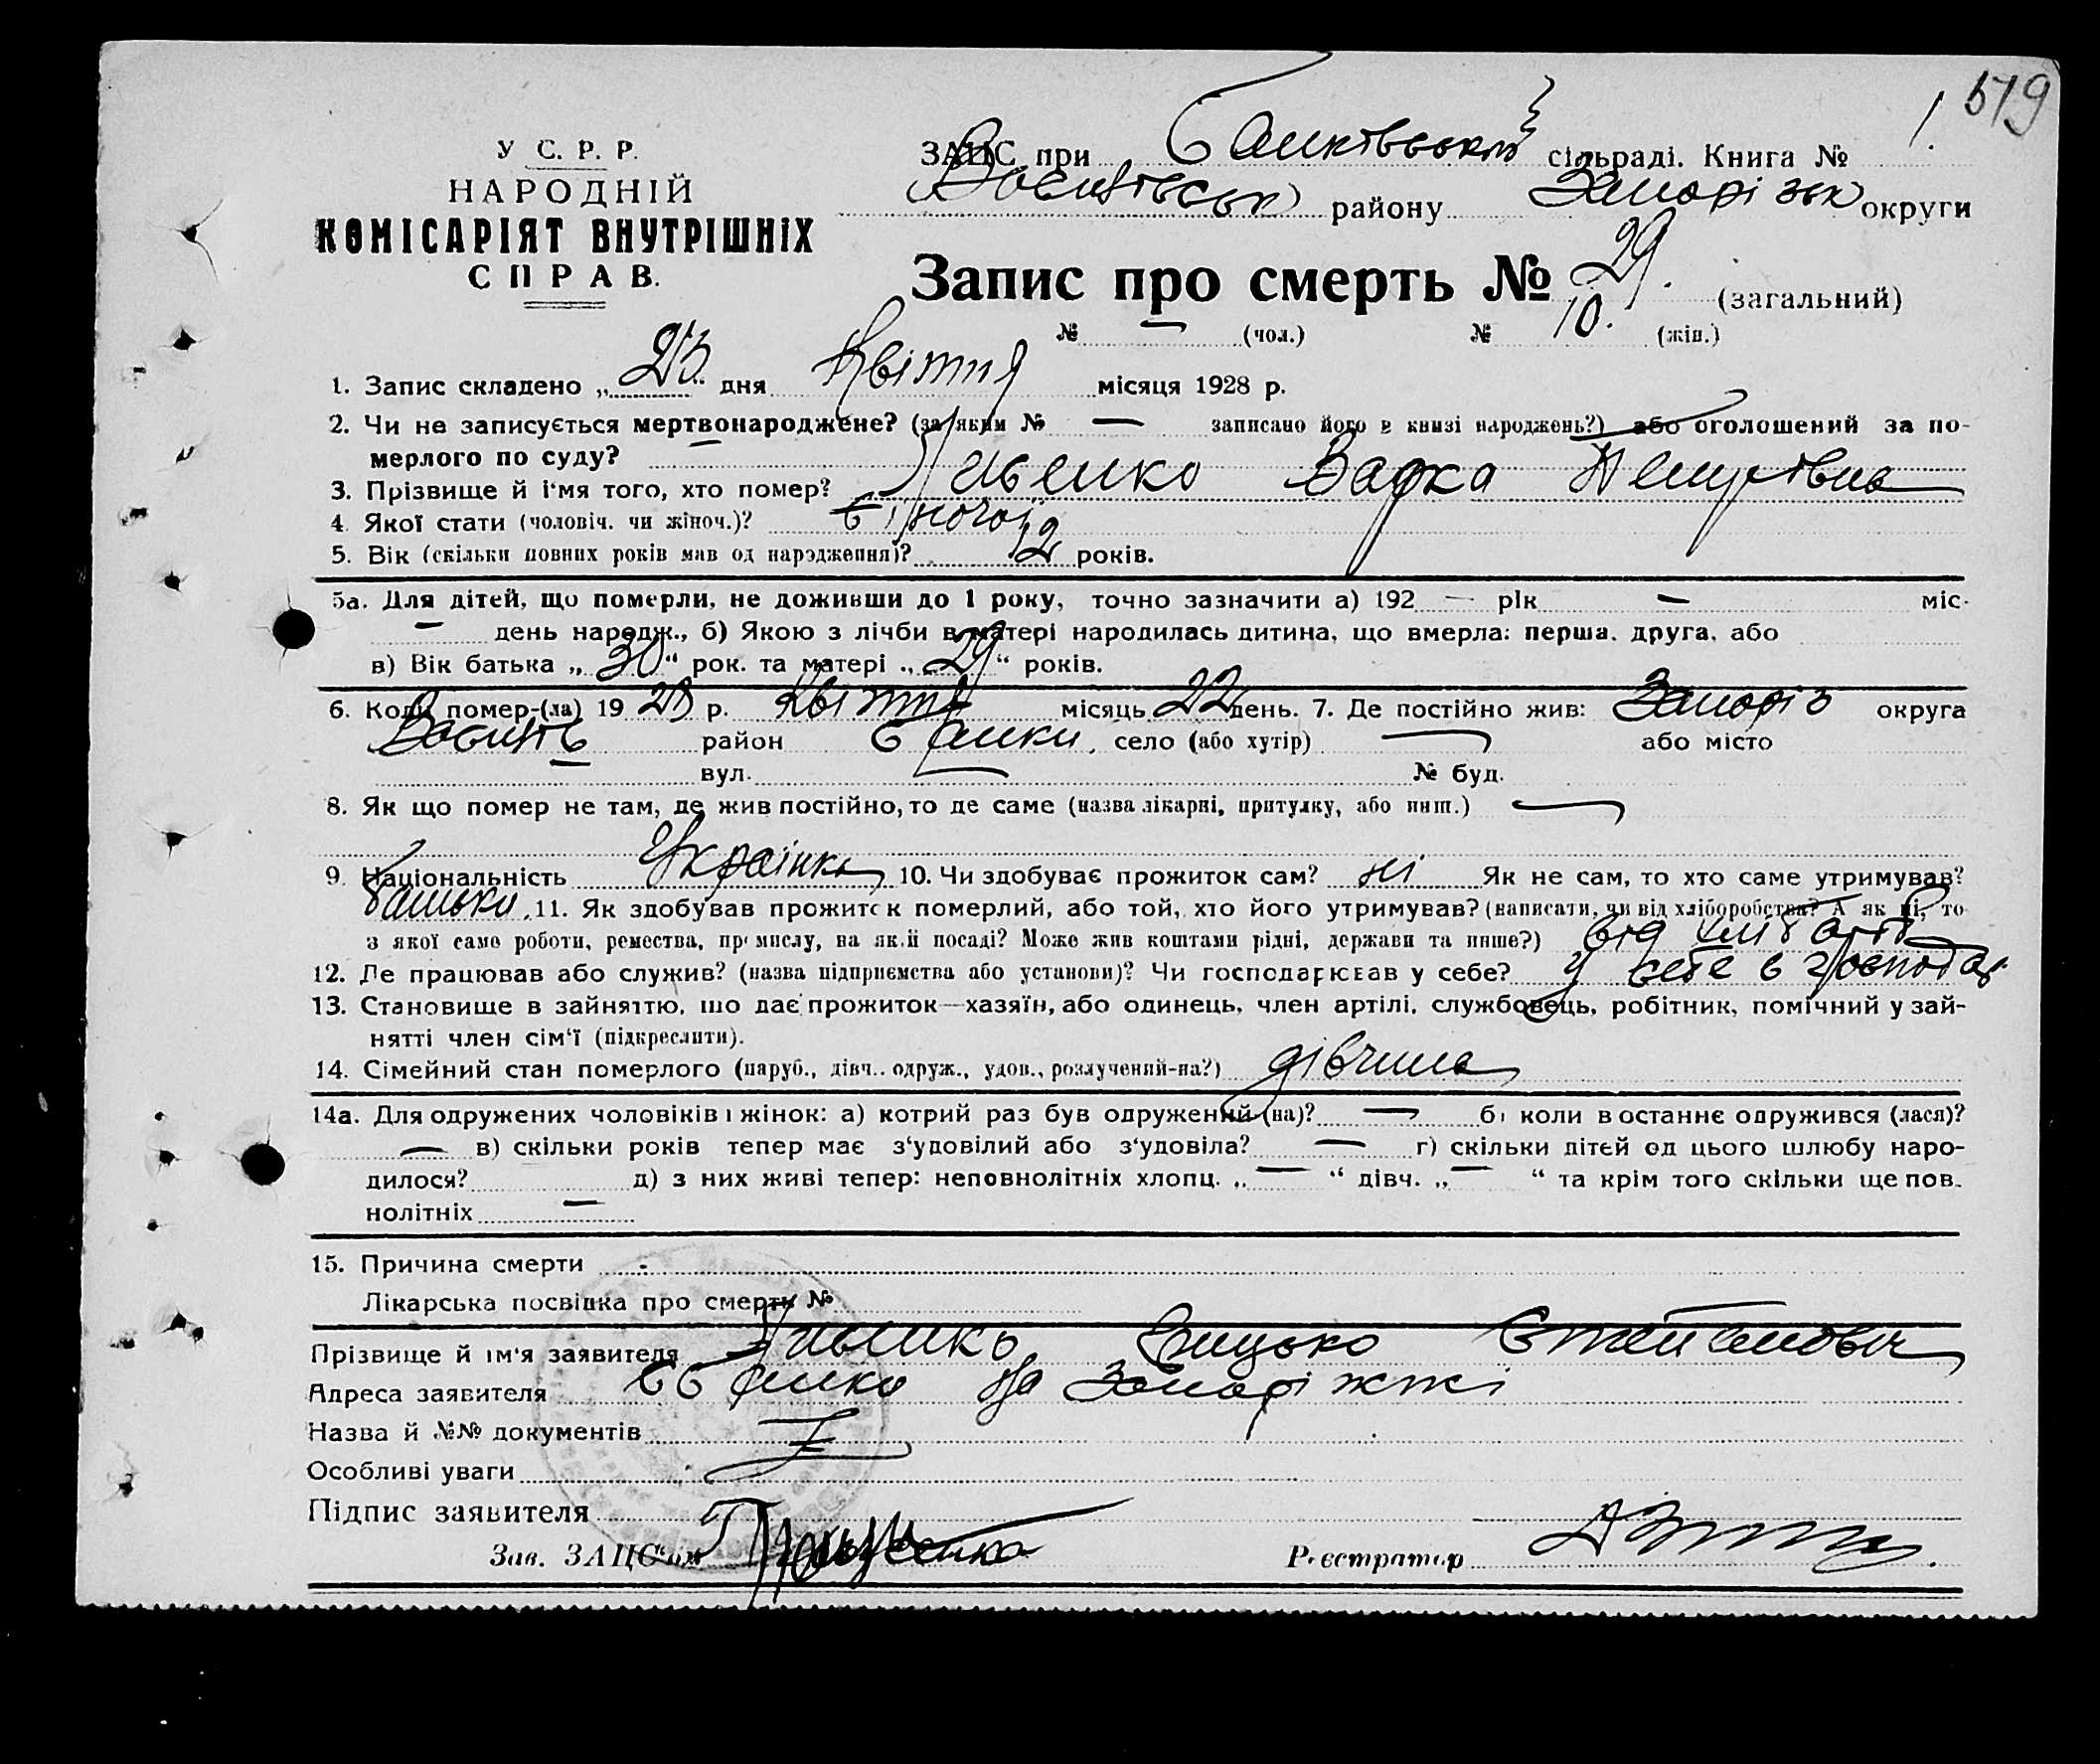 579
У С. Р. Р.
НАРОДНІЙ
КОМІСАРІЯТ ВНУТРІШНІХ
СПРАВ.
ЗАПС при сільраді. Книга № 1.
району округи
Запис про смерть № 29. (загальний)
№ — (чол.) № 10. (жін.)
1. Запис складено „ 25 " дня Квітня місяця 1928 р.
2. Чи не записується мертвонароджене? (за яким № — записано його в книзі народжень?) або оголошений за по-
мерлого по суду? —
3. Прізвище й і'мя того, хто помер? Варка
4. Якої стати (чоловіч. чи жіноч.)? жіночої
5. Вік (скільки повних років мав од народження)? 12 років.
5а. Для дітей, що померли, не доживши до 1 року, точно зазначити а) 192 — рік — міс.
— день народж., б) Якою з лічби в матері народилась дитина, що вмерла: перша, друга, або
в) Вік батька „ 30 " рок. та матері „ 29 " років.
6. Коли помер-(ла) 19 28 р. Квітня місяць 22 день. 7. Де постійно жив: Запоріз округа
район село (або хутір) — або місто
— вул. — № буд.
8. Як що помер не там, де жив постійно, то де саме (назва лікарні, притулку, або инш.) —
9. Національність Українка 10. Чи здобуває прожиток сам? ні Як не сам, то хто саме утримував?
батько. 11. Як здобував прожиток померлий, або той, хто його утримував? (написати, чи від хліборобства? А як ні, то
з якої само роботи, ремества, промислу, на якій посаді? Може жив коштами рідні, держави та инше?) від
12. Де працював або служив? (назва підприємства або установи)? Чи господарював у себе? у себе в господар.
13. Становище в зайняттю, що дає прожиток—хазяїн, або одинець, член артілі, службовець, робітник, помічний у зай-
нятті член сім'ї (підкреслити).
14. Сімейний стан померлого (паруб., дівч.. одруж., удов., розлучений-на?) дівчина
14а. Для одружених чоловіків і жінок: а) котрий раз був одружений-(на)? — б) коли востаннє одружився (лася)?
— в) скільки років тепер має з'удовілий або з'удовіла? — г) скільки дітей од цього шлюбу наро-
дилося? д) з них живі тепер: неповнолітніх хлопц. „ — " дівч. „ — " та крім того скільки ще пов-
нолітніх —
15. Причина смерти -
Лікарська посвідка про смерть №
Прізвище й ім'я заявителя Грицько
Адреса заявителя на Запоріжжі
Назва й №№ документів
Особливі уваги
Підпис заявителя
Зав. ЗАПС'ом Реєстратор